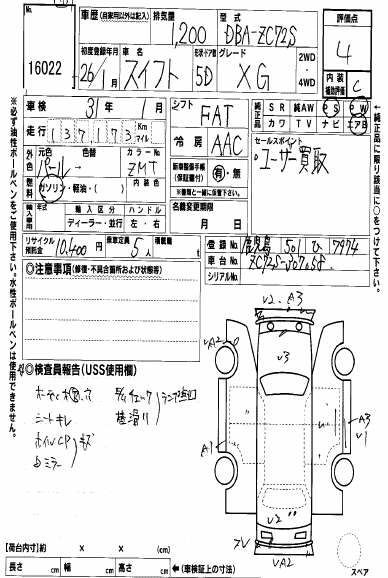 No.
16022
車歴(自家用以外は記入)
排気量
1,200
型式
DBA-ZC72S
評価点
4
初度登録年月
26/1月
車名
スイフト
形状・ドア数
5D
グレード
XG
2WD
4WD
内装
補助評価
C
車検
31年 1月
シフト
FAT
純正品
SR 純AW PS PW
カワ TV ナビ エアB
走行
137173 Km マイル
冷房
AAC
セールスポイント
ユーザー買取
外装
元色
パール
色替
カラーNo.
ZMT
内装色
燃料
ガソリン・軽油・( )
新車整備手帳
(保証書付)
有・無
※書類と一緒に保管下さい。
輸入車用
年式
輸入区分
ディーラー・並行
ハンドル
左・右
名義変更期限
月 日
リサイクル預託金
10,400円
乗車定員
5人
積載量
t
登録No.
鹿児島 501 ひ 7974
車台No.
ZC72S-307058
シリアルNo.
◎注意事項(修復・不具合箇所および状態等)
◎検査員報告(USS使用欄)
シートキレ
ホイルCP
ミラー
V2 A3
VA2
V3
A1
A3
V1
V2
VA2
【荷台内寸】約 x x (cm)
長さ cm 幅 cm 高さ cm
(車検証上の寸法)
スペア
※必ず油性ボールペンをご使用下さい。水性ボールペンは使用できません。
=純正品に限り該当に○をつけて下さい。